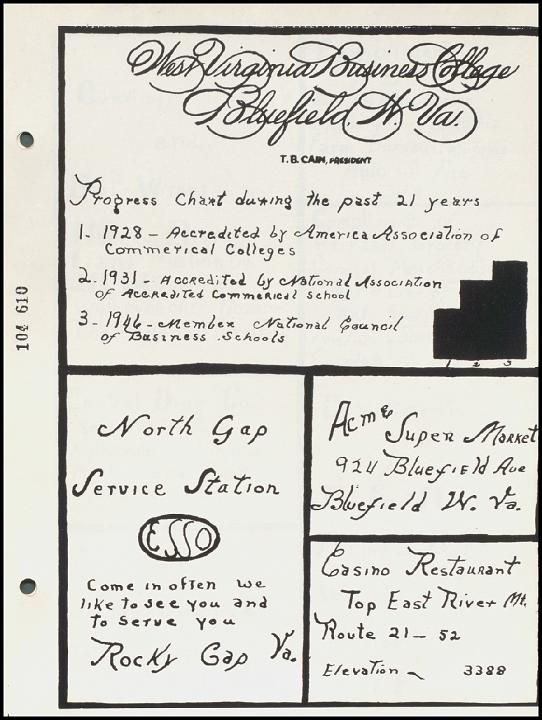 West Virginia Business College
Bluefield, W. Va.
T. B. CAIN, PRESIDENT
Progress Chart during the past 21 years
1. 1928 - Accredited by America Association of
Commerical Colleges
2. 1931 - Accredited by National Association
of Accredited Commerical School
3 - 1946 - Member National Council
of Business Schools
1 2 3
104 610
North Gap
Service Station
ESSO
Come in often we
like to see you and
to serve you
Rocky Gap Va.
Acme Super Market
924 Bluefield Ave
Bluefield W. Va.
Casino Restaurant
Top East River Mt.
Route 21 - 52
Elevation - 3388